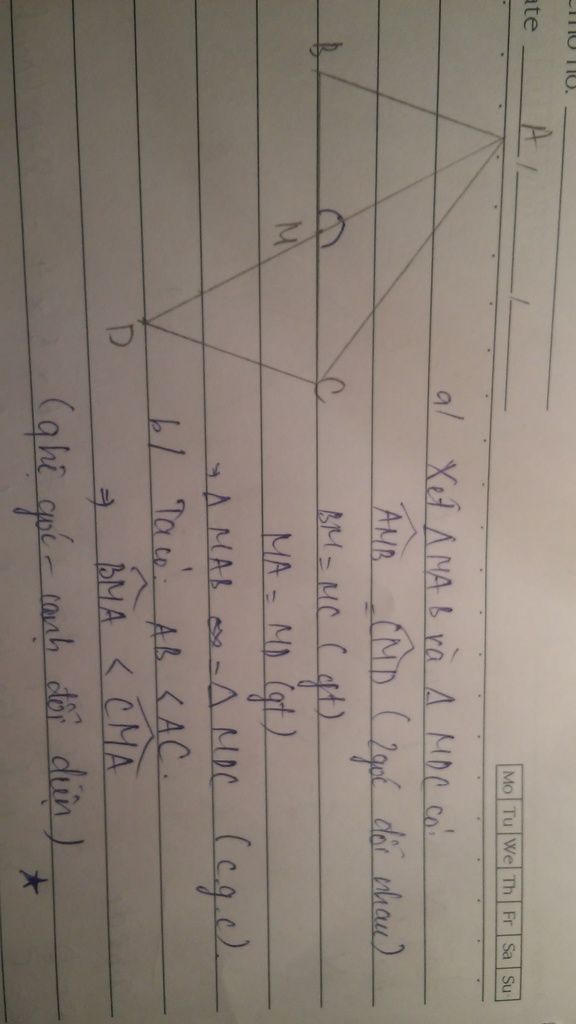 emo no.
ate / /
Mo Tu We Th Fr Sa Su
A
B
M
C
D
a/ Xét Δ MAB và Δ MDC có:
AMB = CMD (2 góc đối nhau)
BM = MC (gt)
MA = MD (gt)
⇒ Δ MAB = Δ MDC (c.g.c).
b/ Ta có: AB < AC.
⇒ BMA < CMA
(ghi góc - cạnh đối diện)